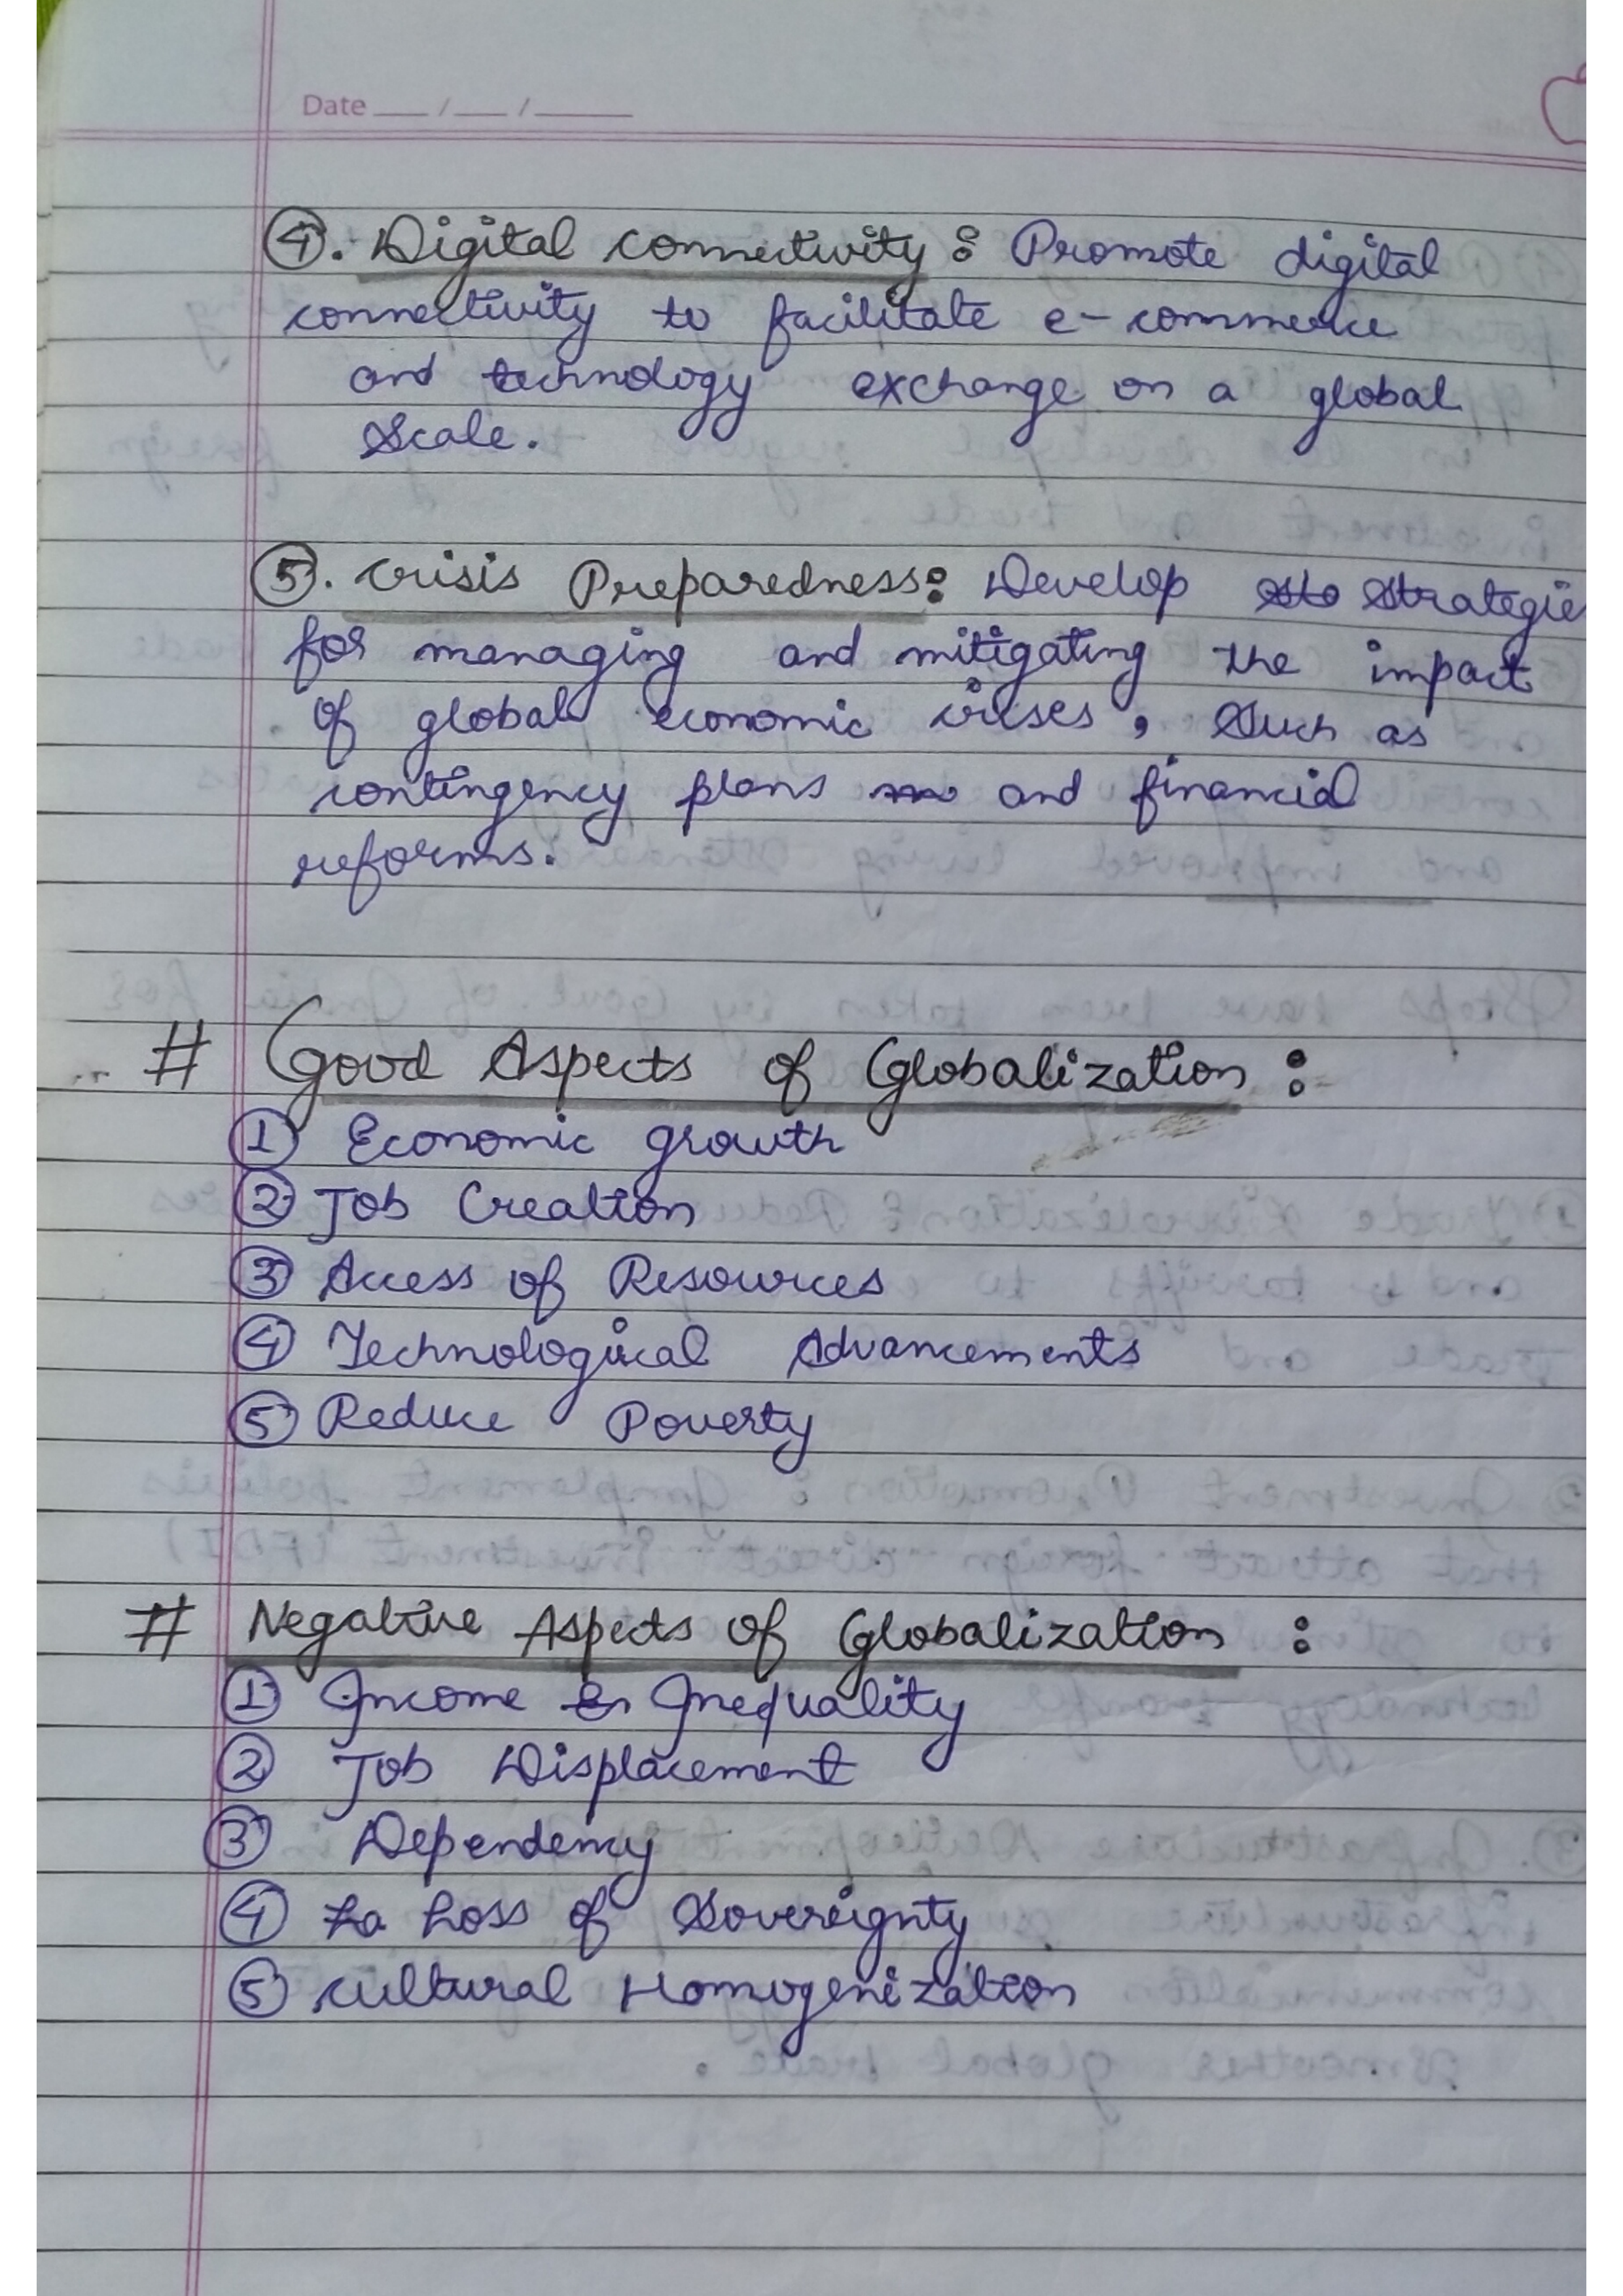 Date ___/___/_____
④. Digital connectivity : Promote digital
connectivity to facilitate e-commerce
and technology exchange on a global
Scale.
⑤. Crisis Preparedness: Develop Strategie
for managing and mitigating the impact
of global economic crises, Such as
contingency plans and financial
reforms.
# Good Aspects of Globalization :
① Economic growth
② Job Creation
③ Access of Resources
④ Technological Advancements
⑤ Reduce Poverty
# Negative Aspects of Globalization :
① Income Inequality
② Job Displacement
③ Dependency
④ Loss of Sovereignty
⑤ Cultural Homogenization